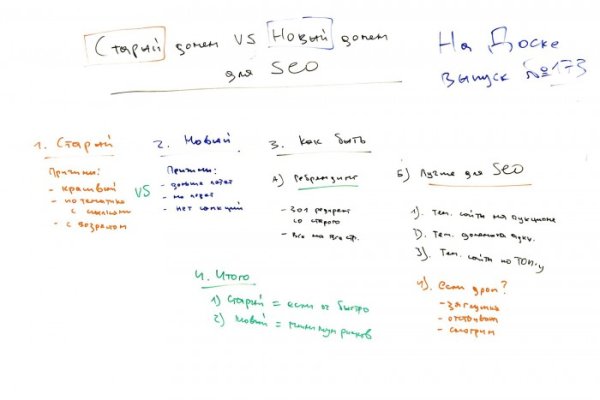 Старый домен VS Новый домен
для SEO
На Доске
выпуск №173
1. Старый
Причины:
- красивый
- по тематике
с ссылками
- с возрастом
VS
2. Новый
Причины:
- дольше
- нет санкций
3. Как быть
А) Ребрендинг
- 301 редирект
со старого
- все на все стр.
Б) Лучше для SEO
1). Тем. сайты на аукционе
2). Тем. домена аукц.
3). Тем. сайты по ТОП-у
4). если дроп?
- заглушка
- отстаиваем
- смотрим
4. Итого
1) Старый = если оч быстро
2) Новый = минимум рисков